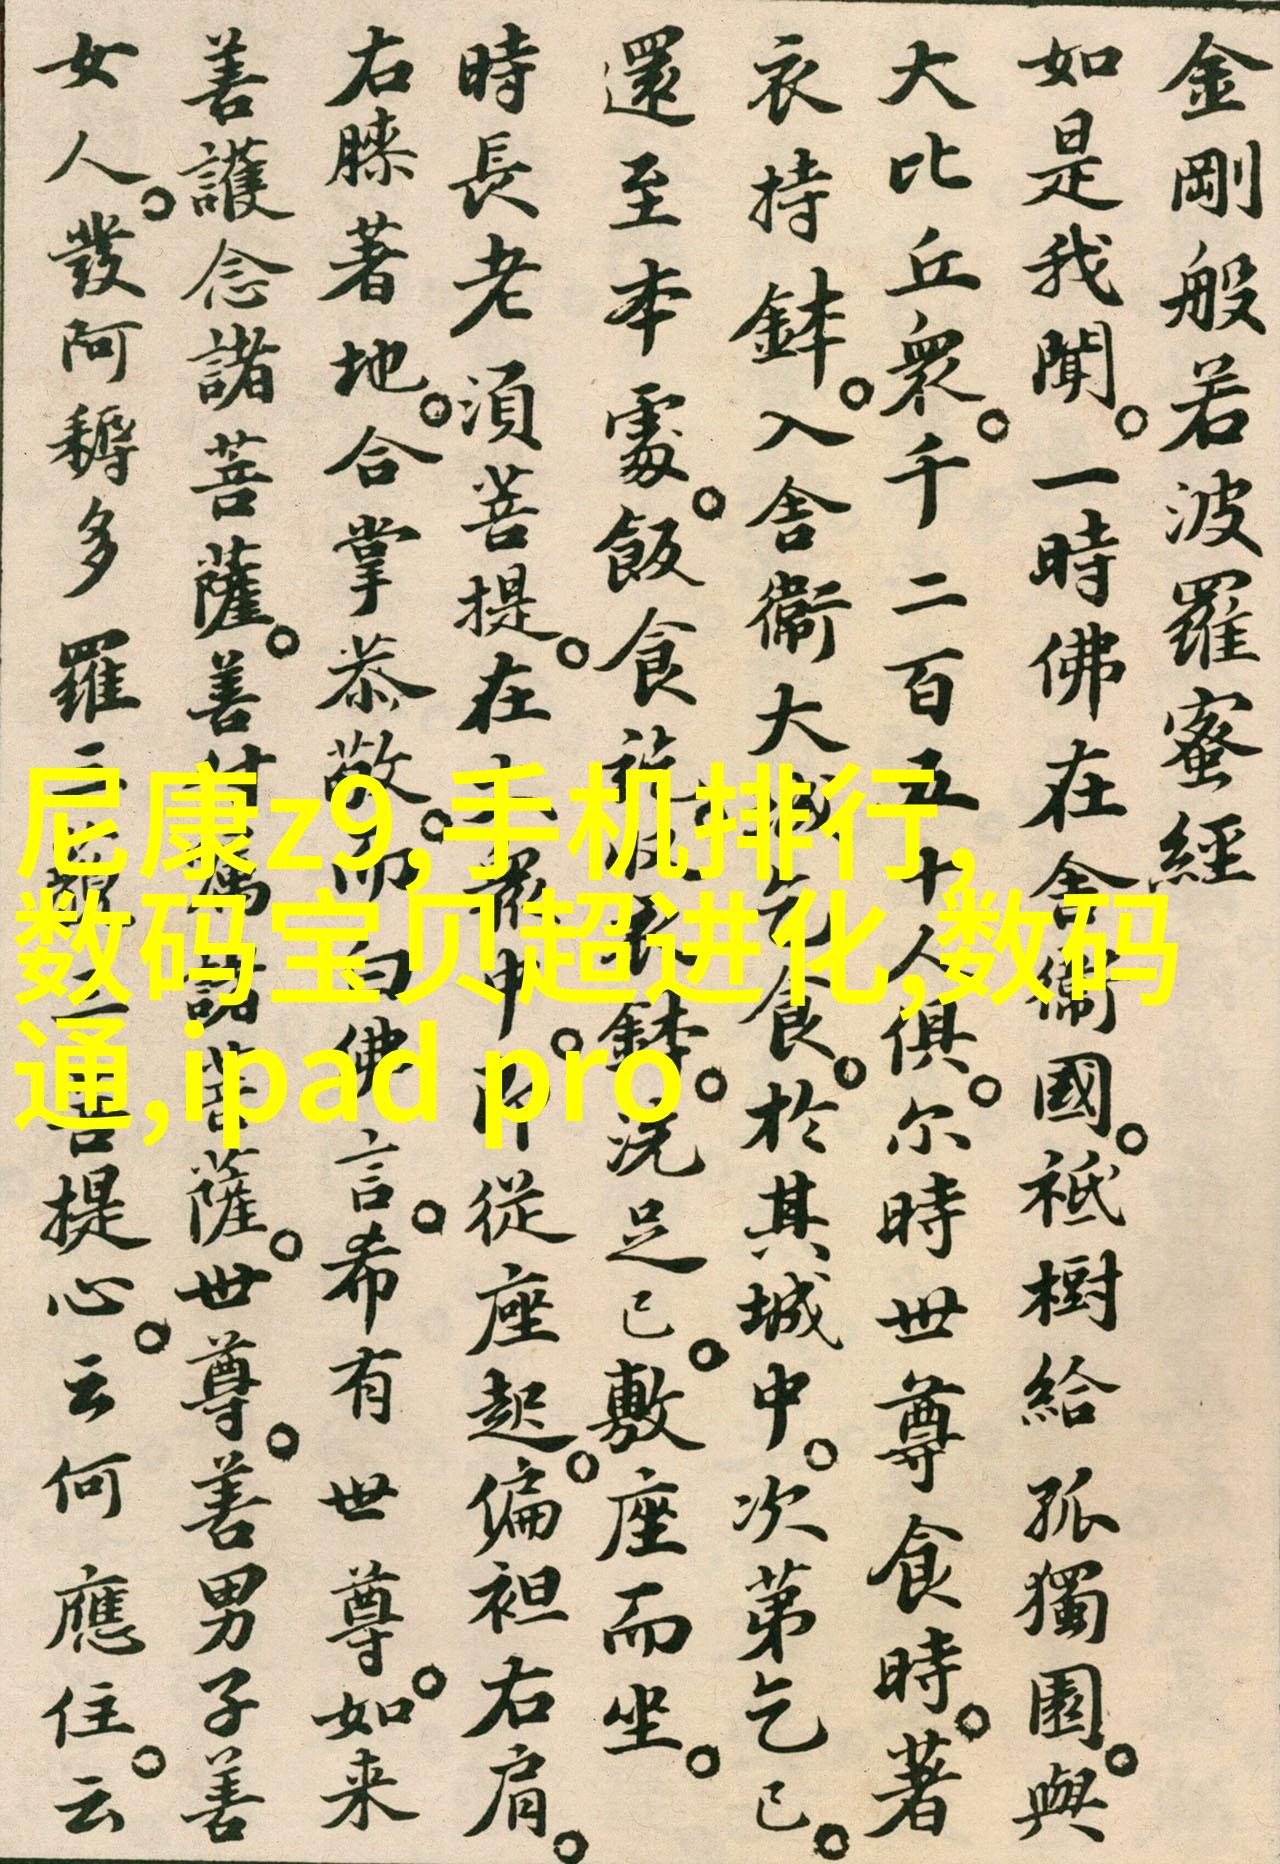 金剛般若波羅蜜經
如是我聞。一時佛在舍衞國。祇樹給孤獨園。與
大比丘衆。千二百五十人俱。尔時世尊食時。著
衣持鉢。入舍衞大城乞食。於其城中。次第乞已。
還至本處。飯食訖。收衣鉢。洗足已。敷座而坐。
時長老須菩提。在大衆中。即從座起。偏袒右肩。
右膝著地。合掌恭敬。而白佛言。希有世尊。如来
善護念諸菩薩。善付囑諸菩薩。世尊。善男子善
女人。發阿耨多羅三藐三菩提心。云何應住。云
尼康z9,手机排行,
数码宝贝超进化,数码
通,ipad pro